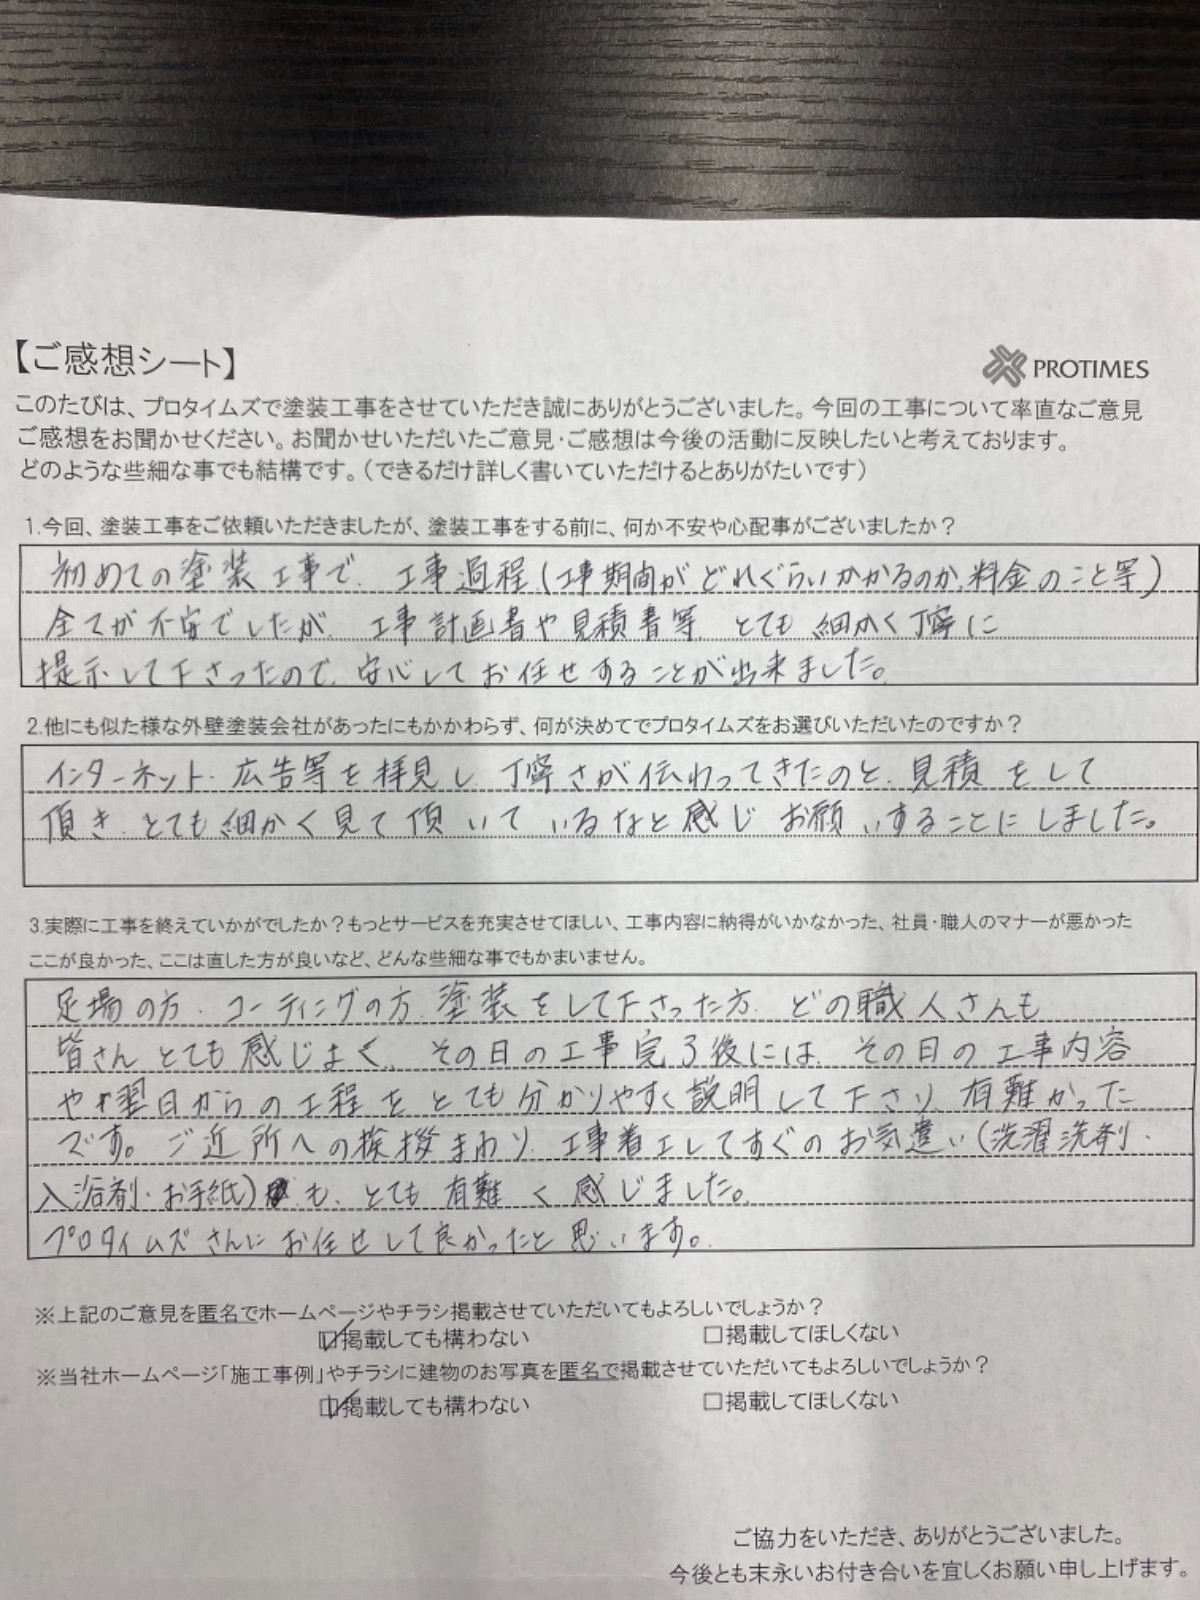 【ご感想シート】
PROTIMES
このたびは、プロタイムズで塗装工事をさせていただき誠にありがとうございました。今回の工事について率直なご意見
ご感想をお聞かせください。お聞かせいただいたご意見・ご感想は今後の活動に反映したいと考えております。
どのような些細な事でも結構です。（できるだけ詳しく書いていただけるとありがたいです）
1.今回、塗装工事をご依頼いただきましたが、塗装工事をする前に、何か不安や心配事がございましたか？
初めての塗装工事で、工事過程（工事期間がどれぐらいかかるのか、料金のこと等）
全てが不安でしたが、工事計画書や見積書等、とても細かく丁寧に
提示して下さったので、安心してお任せすることが出来ました。
2.他にも似た様な外壁塗装会社があったにもかかわらず、何が決めてでプロタイムズをお選びいただいたのですか？
インターネット・広告等を拝見し、丁寧さが伝わってきたのと、見積をして
頂き、とても細かく見て頂いているなと感じお願いすることにしました。
3.実際に工事を終えていかがでしたか？もっとサービスを充実させてほしい、工事内容に納得がいかなかった、社員・職人のマナーが悪かった
ここが良かった、ここは直した方が良いなど、どんな些細な事でもかまいません。
足場の方・コーティングの方、塗装をして下さった方、どの職人さんも
皆さんとても感じよく、その日の工事完了後には、その日の工事内容
や翌日からの工程をとても分かりやすく説明して下さり、有難かった
です。ご近所への挨拶まわり、工事着工してすぐのお気遣い（洗濯洗剤・
入浴剤・お手紙）も、とても有難く感じました。
プロタイムズさんにお任せして良かったと思います。
※上記のご意見を匿名でホームページやチラシ掲載させていただいてもよろしいでしょうか？
☑掲載しても構わない □掲載してほしくない
※当社ホームページ「施工事例」やチラシに建物のお写真を匿名で掲載させていただいてもよろしいでしょうか？
☑掲載しても構わない □掲載してほしくない
ご協力をいただき、ありがとうございました。
今後とも末永いお付き合いを宜しくお願い申し上げます。